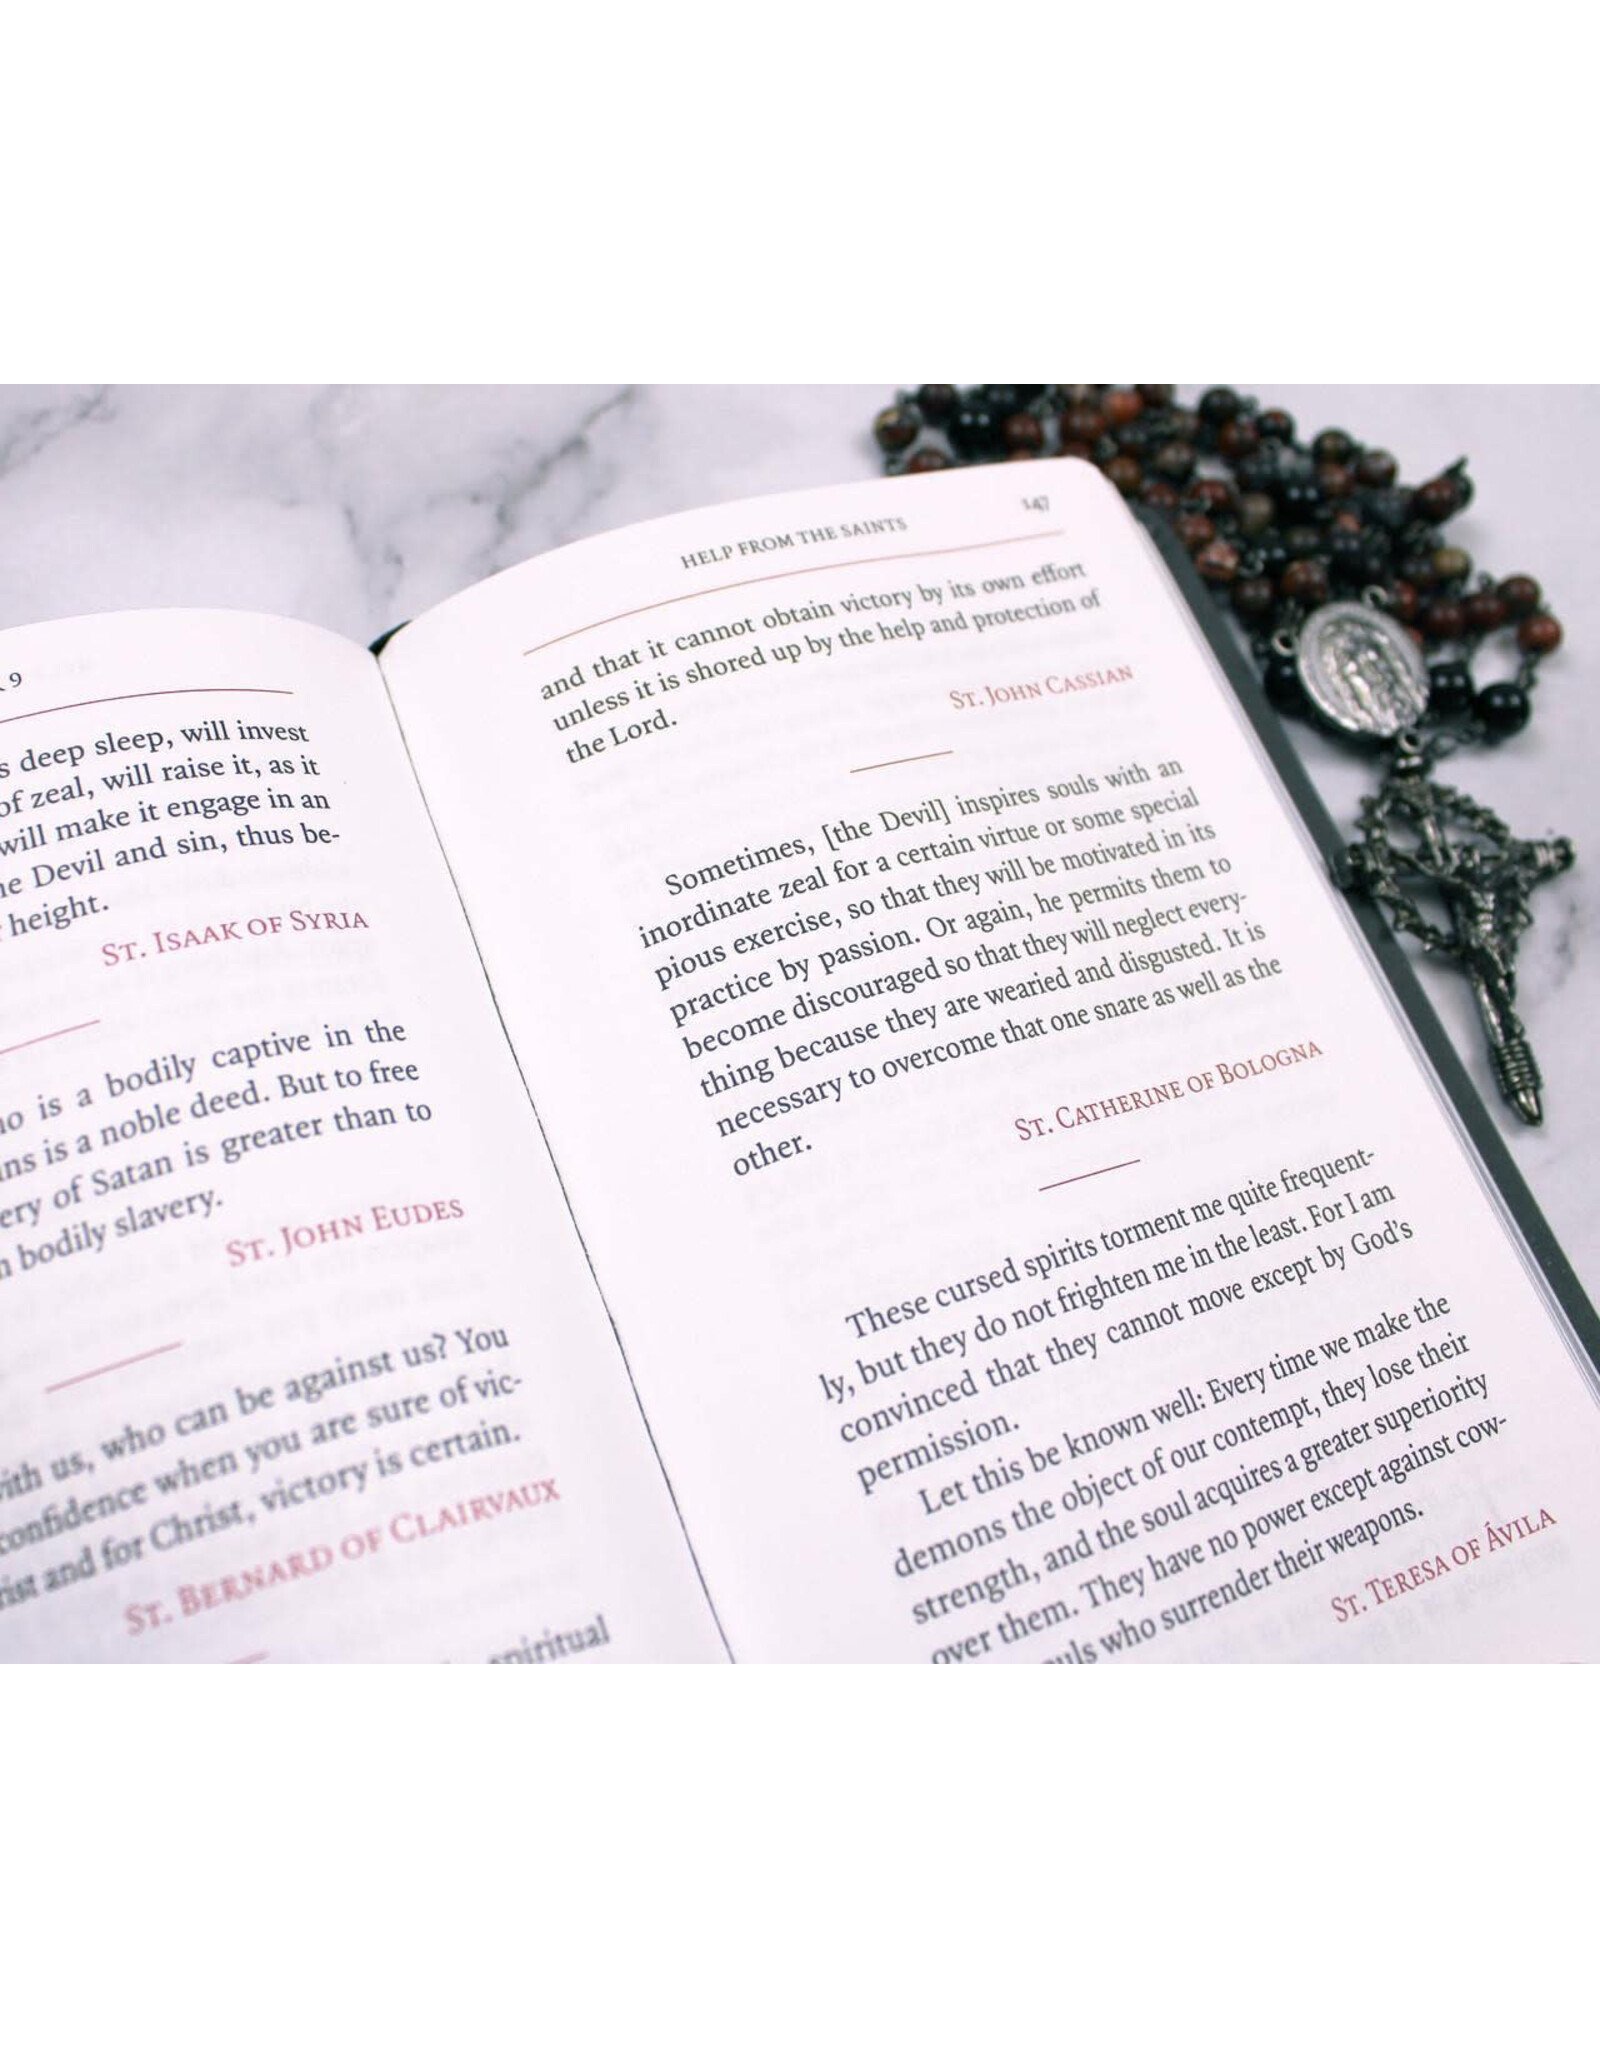 9
s deep sleep, will invest
of zeal, will raise it, as it
will make it engage in an
he Devil and sin, thus be-
height.
ST. ISAAK OF SYRIA
ho is a bodily captive in the
ns is a noble deed. But to free
ery of Satan is greater than to
n bodily slavery.
ST. JOHN EUDES
with us, who can be against us? You
confidence when you are sure of vic-
rist and for Christ, victory is certain.
ST. BERNARD OF CLAIRVAUX
spiritual
HELP FROM THE SAINTS 147
and that it cannot obtain victory by its own effort
unless it is shored up by the help and protection of
the Lord.
ST. JOHN CASSIAN
Sometimes, [the Devil] inspires souls with an
inordinate zeal for a certain virtue or some special
pious exercise, so that they will be motivated in its
practice by passion. Or again, he permits them to
become discouraged so that they will neglect every-
thing because they are wearied and disgusted. It is
necessary to overcome that one snare as well as the
other.
ST. CATHERINE OF BOLOGNA
These cursed spirits torment me quite frequent-
ly, but they do not frighten me in the least. For I am
convinced that they cannot move except by God's
permission.
Let this be known well: Every time we make the
demons the object of our contempt, they lose their
strength, and the soul acquires a greater superiority
over them. They have no power except against cow-
uls who surrender their weapons.
ST. TERESA OF ÁVILA